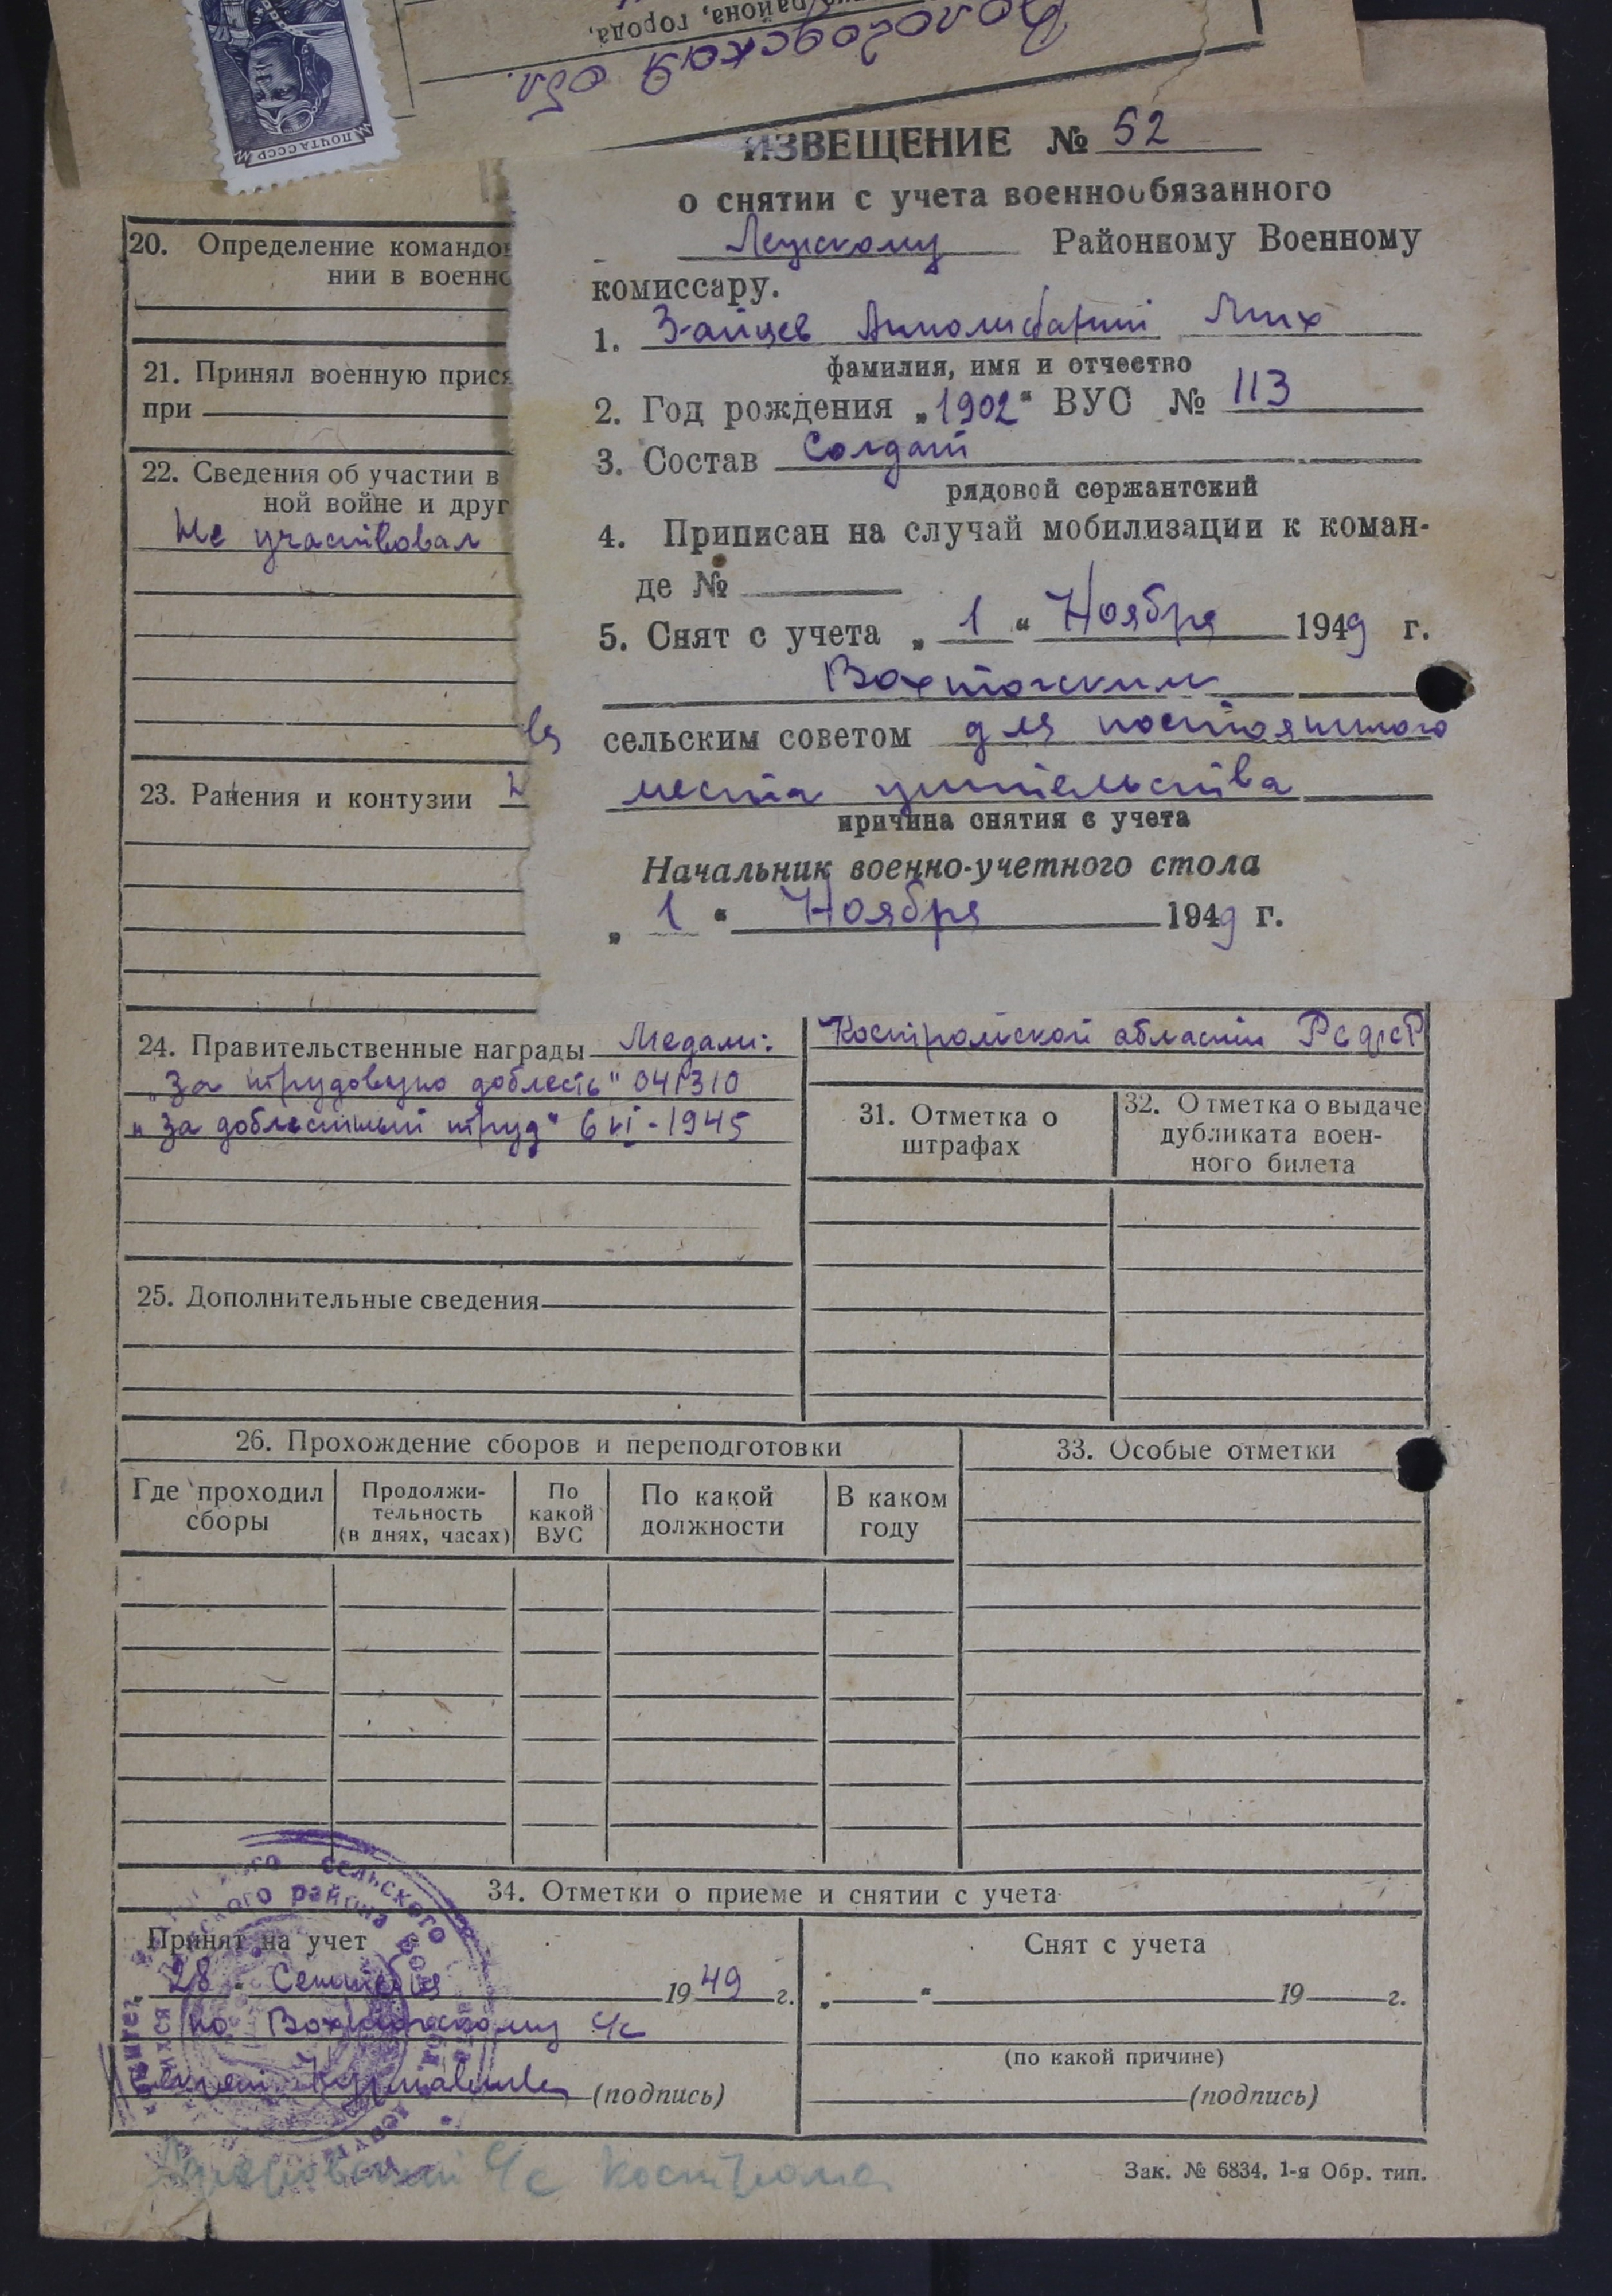 района, города,
Вологодская обл.
ПОЧТА СССР
ИЗВЕЩЕНИЕ № 52
о снятии с учета военнообязанного
Лежскому Районному Военному
комиссару.
1. Зайцев Мих
фамилия, имя и отчество
2. Год рождения „1902“ ВУС № 113
3. Состав Солдат
рядовой сержантский
4. Приписан на случай мобилизации к коман-
де №
5. Снят с учета „1“ Ноября 1949 г.
Вохтожским
сельским советом для постоянного
места жительства
причина снятия с учета
Начальник военно-учетного стола
„1“ Ноября 1949 г.
20. Определение командов
нии в военно
21. Принял военную прися
при
22. Сведения об участии в
ной войне и друг
Не участвовал
23. Ранения и контузии
24. Правительственные награды Медали:
„За трудовую доблесть" 041310
„За доблестный труд" 6 VI - 1945
25. Дополнительные сведения
Костромской области РСФСР
31. Отметка о
штрафах
32. Отметка о выдаче
дубликата воен-
ного билета
26. Прохождение сборов и переподготовки
Где проходил
сборы
Продолжи-
тельность
(в днях, часах)
По
какой
ВУС
По какой
должности
В каком
году
33. Особые отметки
34. Отметки о приеме и снятии с учета
Принят на учет
„28“ Сентября 1949 г.
по Вохтожскому с/с
(подпись)
Снят с учета
„ “ 19 г.
(по какой причине)
(подпись)
сельского
района
с/с Кострома
Зак. № 6834. 1-я Обр. тип.